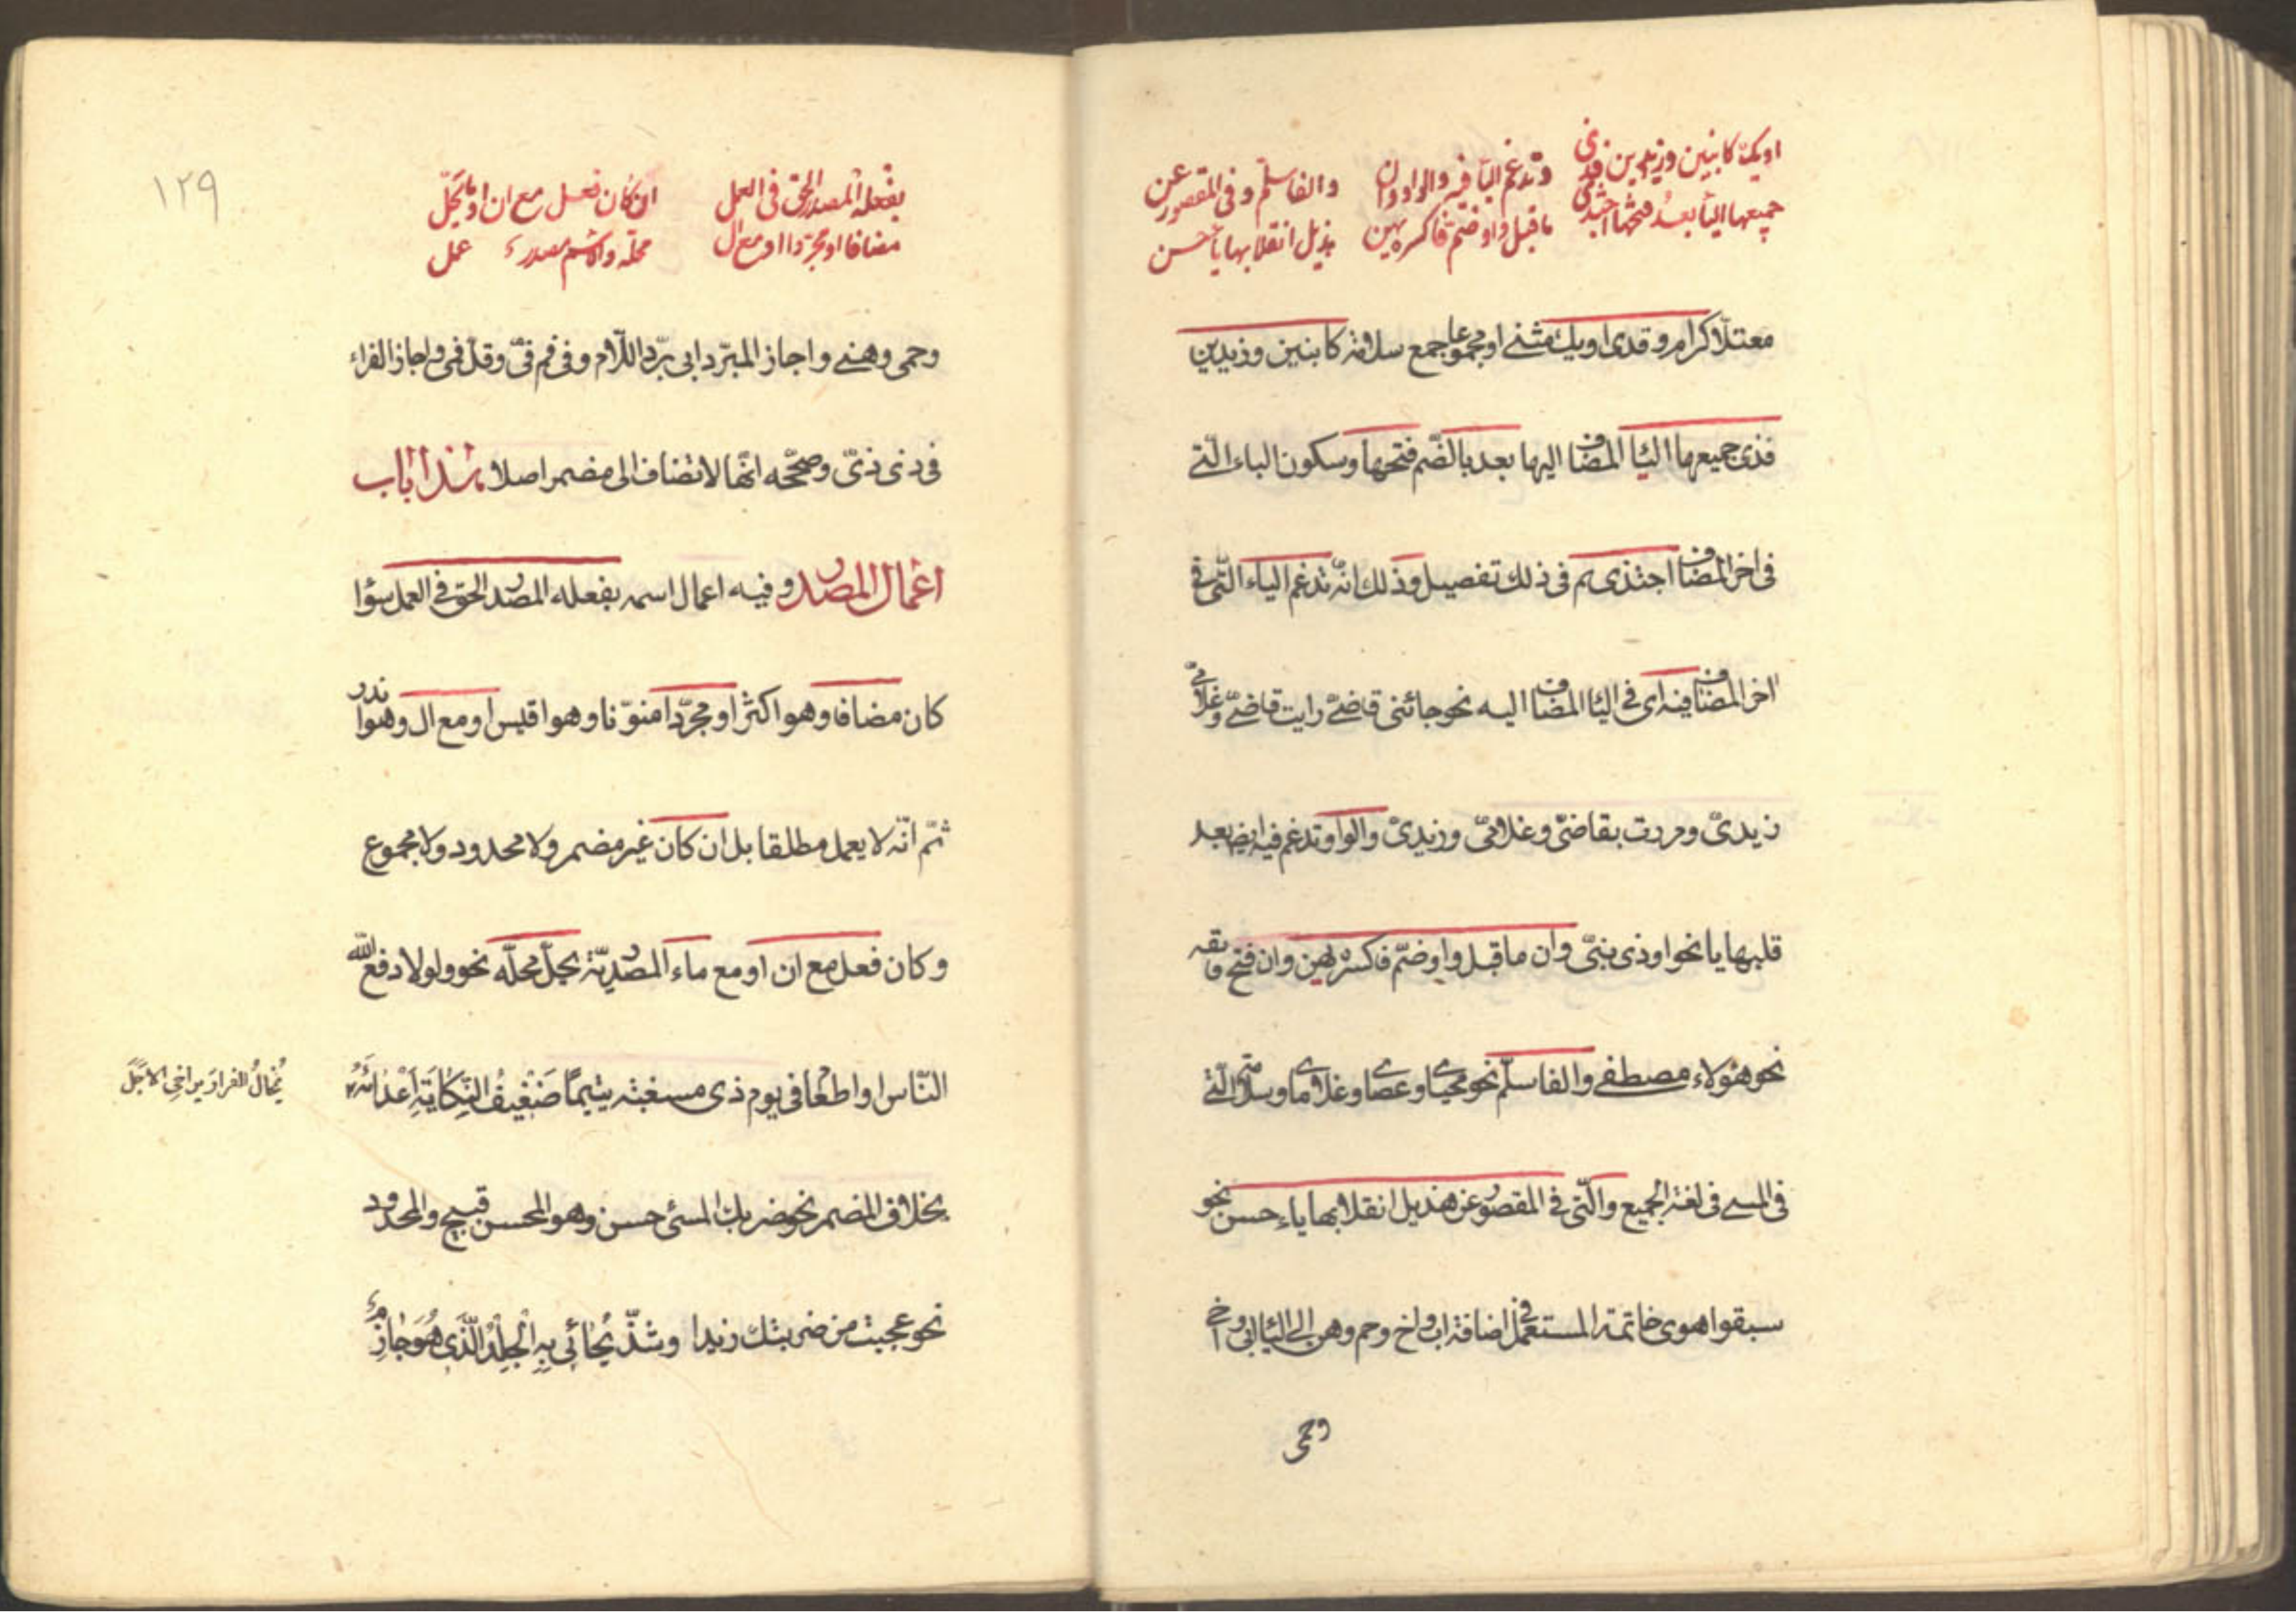 او يك كابنين وزيدين فذى
جميعها اليا بعد فتحها احتذى
وتدغم اليا فيه والواو وان
ما قبل واو ضم فاكسره يهن
والفا سلّم وفى المقصور عن
هذيل انقلابها ياءً حسن
معتلّا كرام وقدى او يك مثنے او مجموعا جمع سلامة كابنين وزيدين
فذى جميعها اليا المضاف اليها بعد بالضّم فتحها وسكون الياء الّتے
فى اخر المضاف احتذى ثم فى ذلك تفصيل وذلك انّه تدغم الياء الّتى فى
اخر المضاف فيه اى فى اليا المضاف اليه نحو جائنى قاضىّ رايت قاضىّ وغلامىّ
زيدىّ ومررت بقاضىّ وغلامىّ وزيدىّ والواو تدغم فيه ايض بعد
قلبها يا نحو اوذى بنىّ وان ما قبل واو ضمّ فاكسره يهن وان فتح فابقه
نحو هؤلاء مصطفے والفا سلّم نحو محياى وعصاى وغلاماى وسلامة الّتے
فى المسے فى لغة الجميع والّتى فى المقصور عن هذيل انقلابها ياء حسن نحو
سبقوا هوى خاتمة المستعمل فى اضافة اب واخ وحم وهن الى اليا ابى واخى
وحمى
١٢٩
بفعله المصدر الحق فى العمل
مضافا او مجرّدا او مع ال
ان كان فعل مع ان او ما يحلّ
محلّه ولاسم مصدر عمل
وحمى وهنے واجاز المبرّد ابى بردّ اللّام وفى فم فىّ وقل فمى واجاز الفراء
فى ذى ذىّ وصحّحه انّها لا تضاف الى مضمر اصلا هذا باب
اعمال المصدر وفيه اعمال اسمه بفعله المصدر الحق فى العمل سؤا
كان مضافا وهو اكثر او مجرّدا منوّنا وهو اقيس او مع ال وهو اندر
ثمّ انّه لا يعمل مطلقا بل ان كان غير مضمر ولا محدود ولا مجموع
وكان فعل مع ان او مع ماء المصدريّة يحلّ محلّه نحو ولولا دفع الله
النّاس او اطعا فى يوم ذى مسغبة يتيماً ضَعْيفُ النِّكايَةِ اَعْدائَهُ
يُخالُ الفرار يراخى الاجَلَ
بخلاف المضمر نحو ضربك المسئ حسن وهو المحسن قبيح والمحدود
نحو عجبت من ضربتك زيدا وشذّ يُحائى بِهِ الْجَلْدُ الَّذى هُوَ حازِمٌ